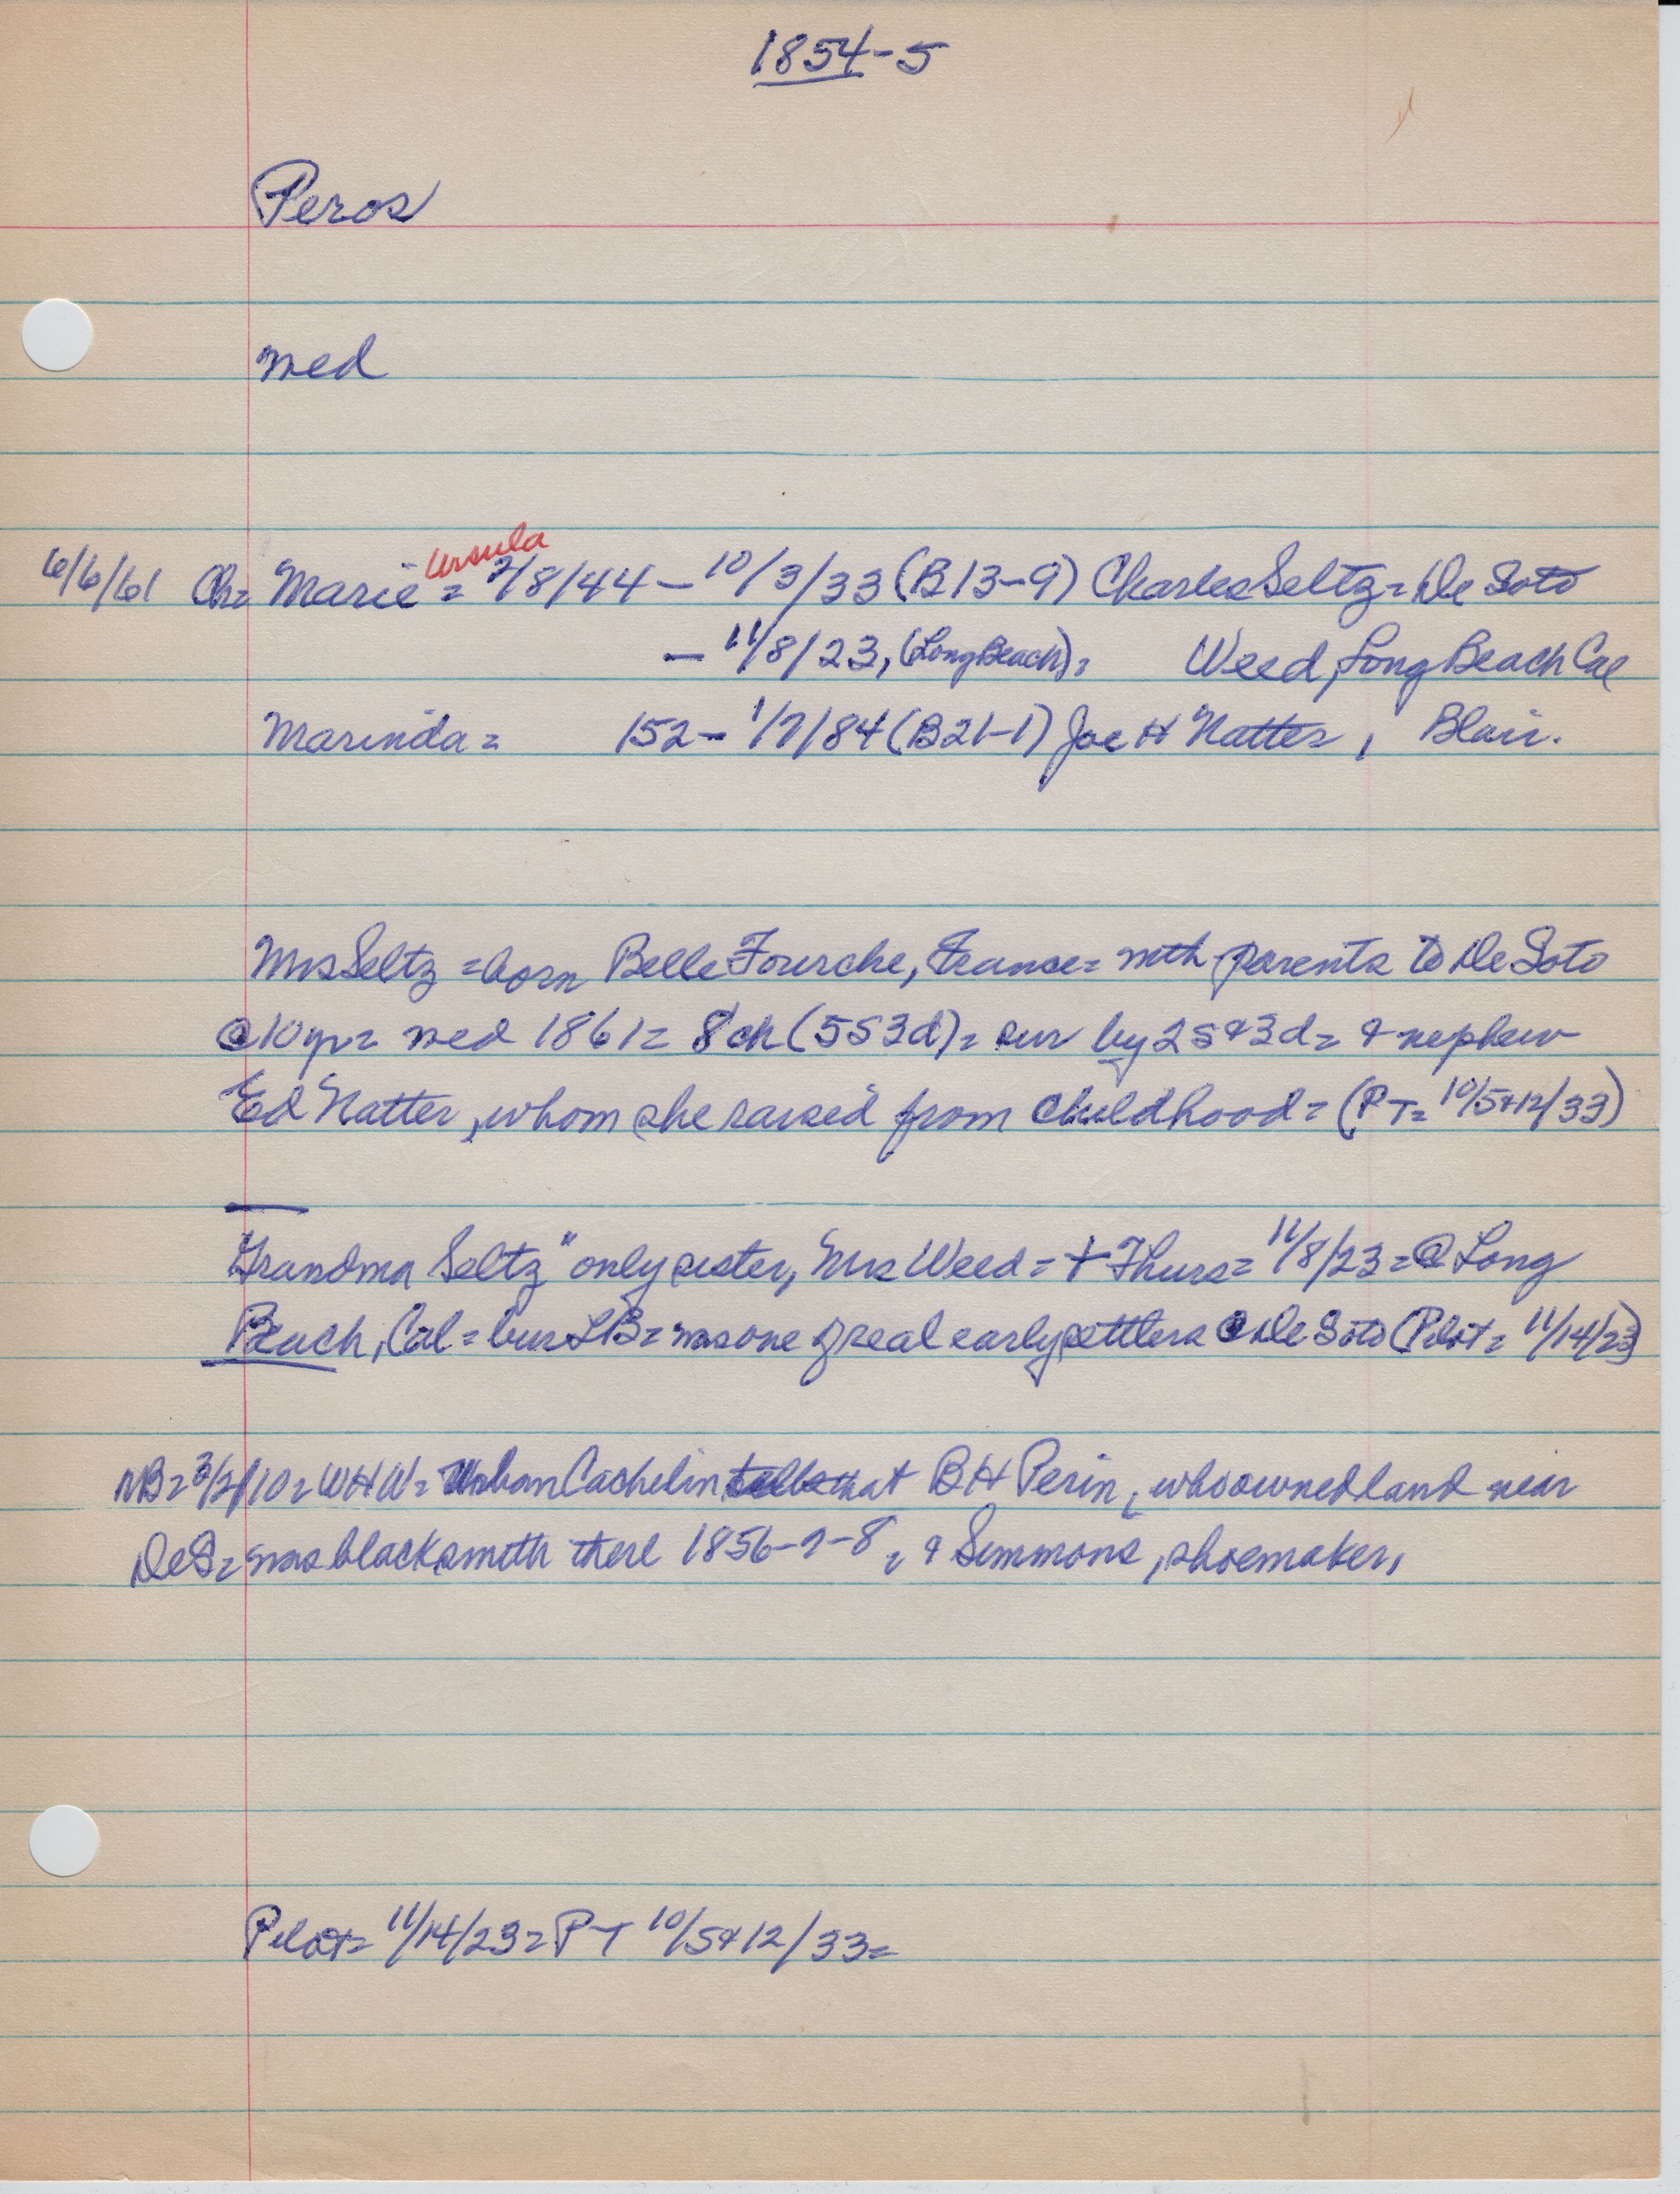 1854-5
Peros
med
Ursula
6/6/61 Ch= Marie = 2/8/44 - 10/3/33 (B13-9) Charles Seltz = De Soto
- 11/8/23, (Long Beach) = Weed, Long Beach Cal
Marinda = 152 - 1/7/84 (B21-1) Joe H Natter, Blair.
Mrs Seltz = born Belle Fourche, France = with parents to De Soto
@ 10 yr = med 1861 = 8 ch (5 S 3 d) = sur by 2 s & 3 d = & nephew
Ed Natter, whom she raised from childhood = (PT = 10/5 & 12/33)
"Grandma Seltz" only sister, Mrs Weed = + Thurs = 11/8/23 = @ Long
Beach, Cal = bur LB = was one of real early settlers @ De Soto (Pilot = 11/14/23)
NB = 3/2/10 = WHW = Urban Cachelin tells that BH Perin, who owned land near
DeS = was blacksmith there 1856-7-8, & Simmons, shoemaker,
Pilot = 11/14/23 = PT 10/5 & 12/33 =